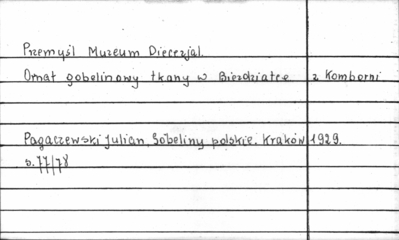 Przemyśl Muzeum Diecezjal.
Ornat gobelinowy tkany w Bieździatce z Komborni
Pagaczewski Julian, Gobeliny polskie. Kraków 1929.
s. 77/78